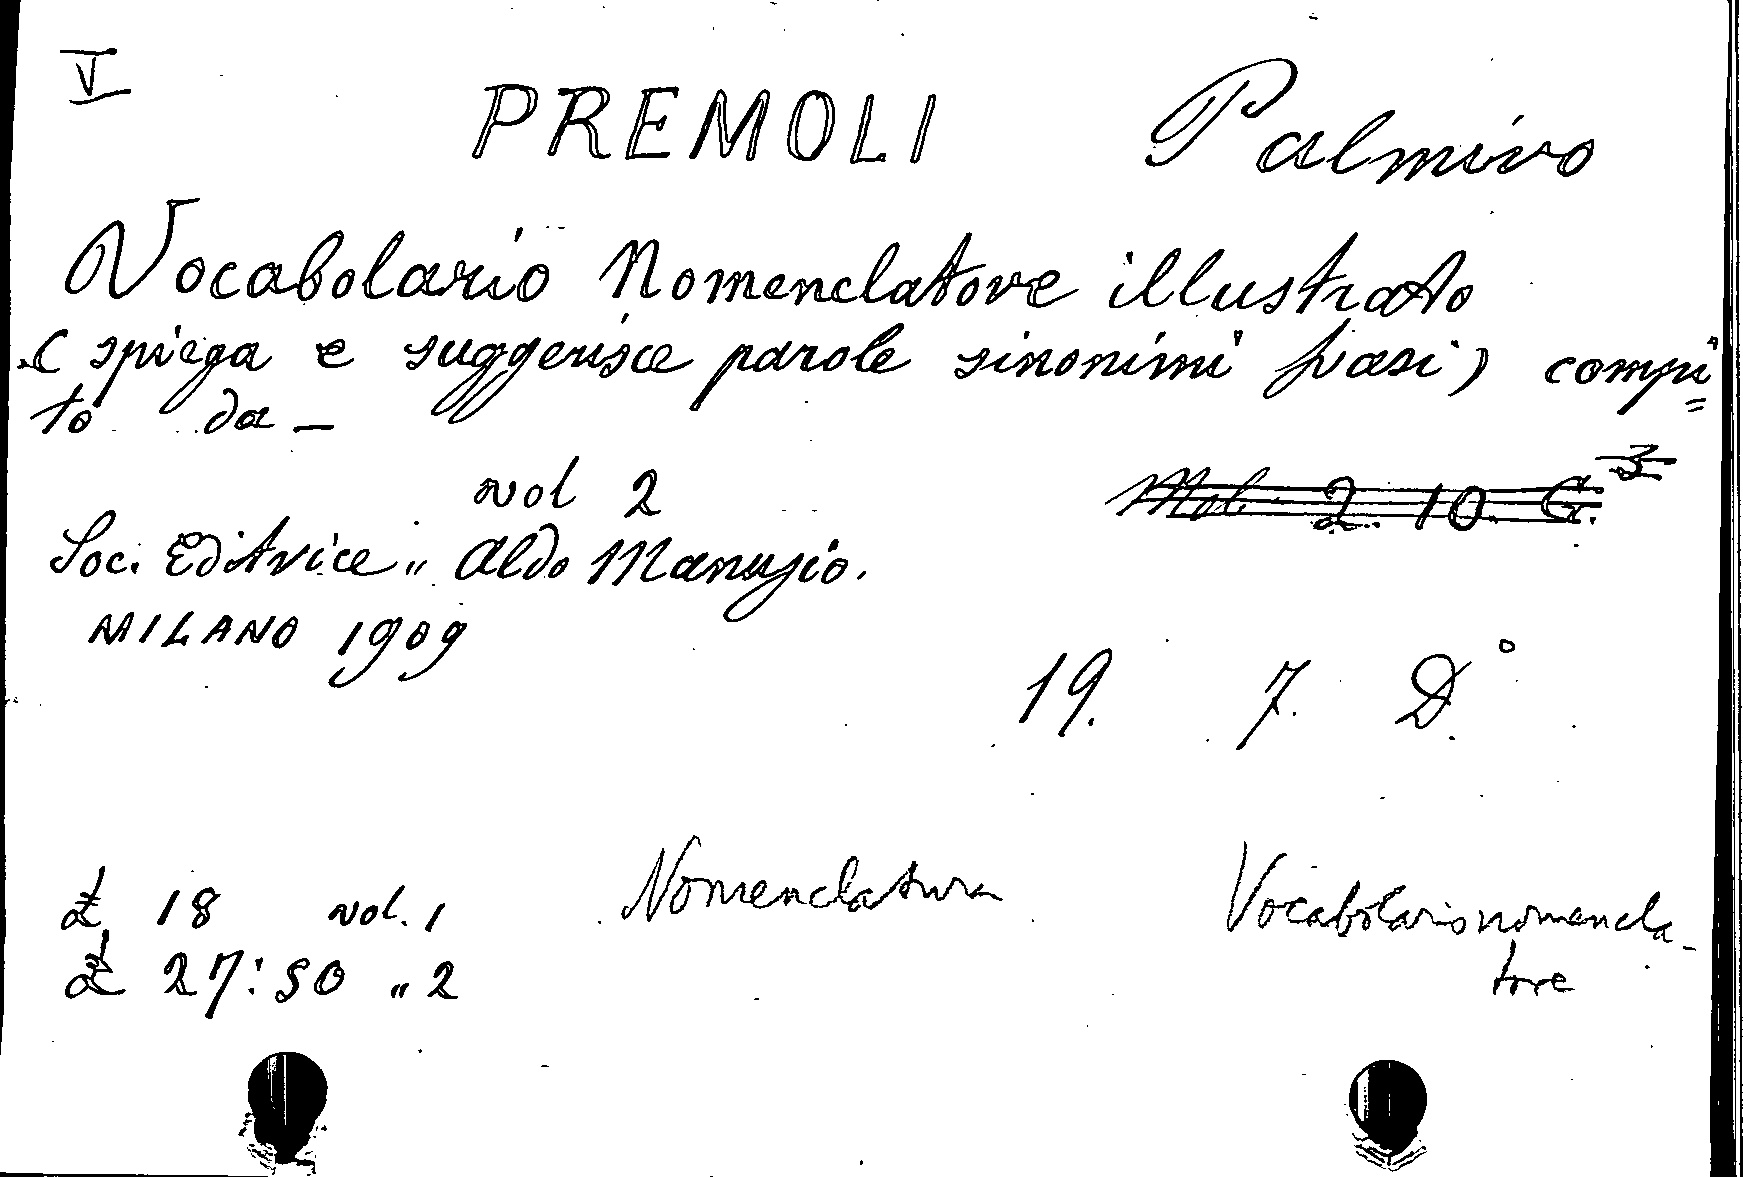 V
PREMOLI Palmiro
Vocabolario Nomenclatore illustrato
( spiega e suggerisce parole sinonimi frasi) compi=
to da –
vol 2
Mol. 2. 10. G. 3
Soc. Editrice „ Aldo Manuzio.
MILANO 1909
19. 7. D.°
£ 18 vol. 1
£ 27:50 „ 2
Nomenclatura
Vocabolario nomencla-
tore